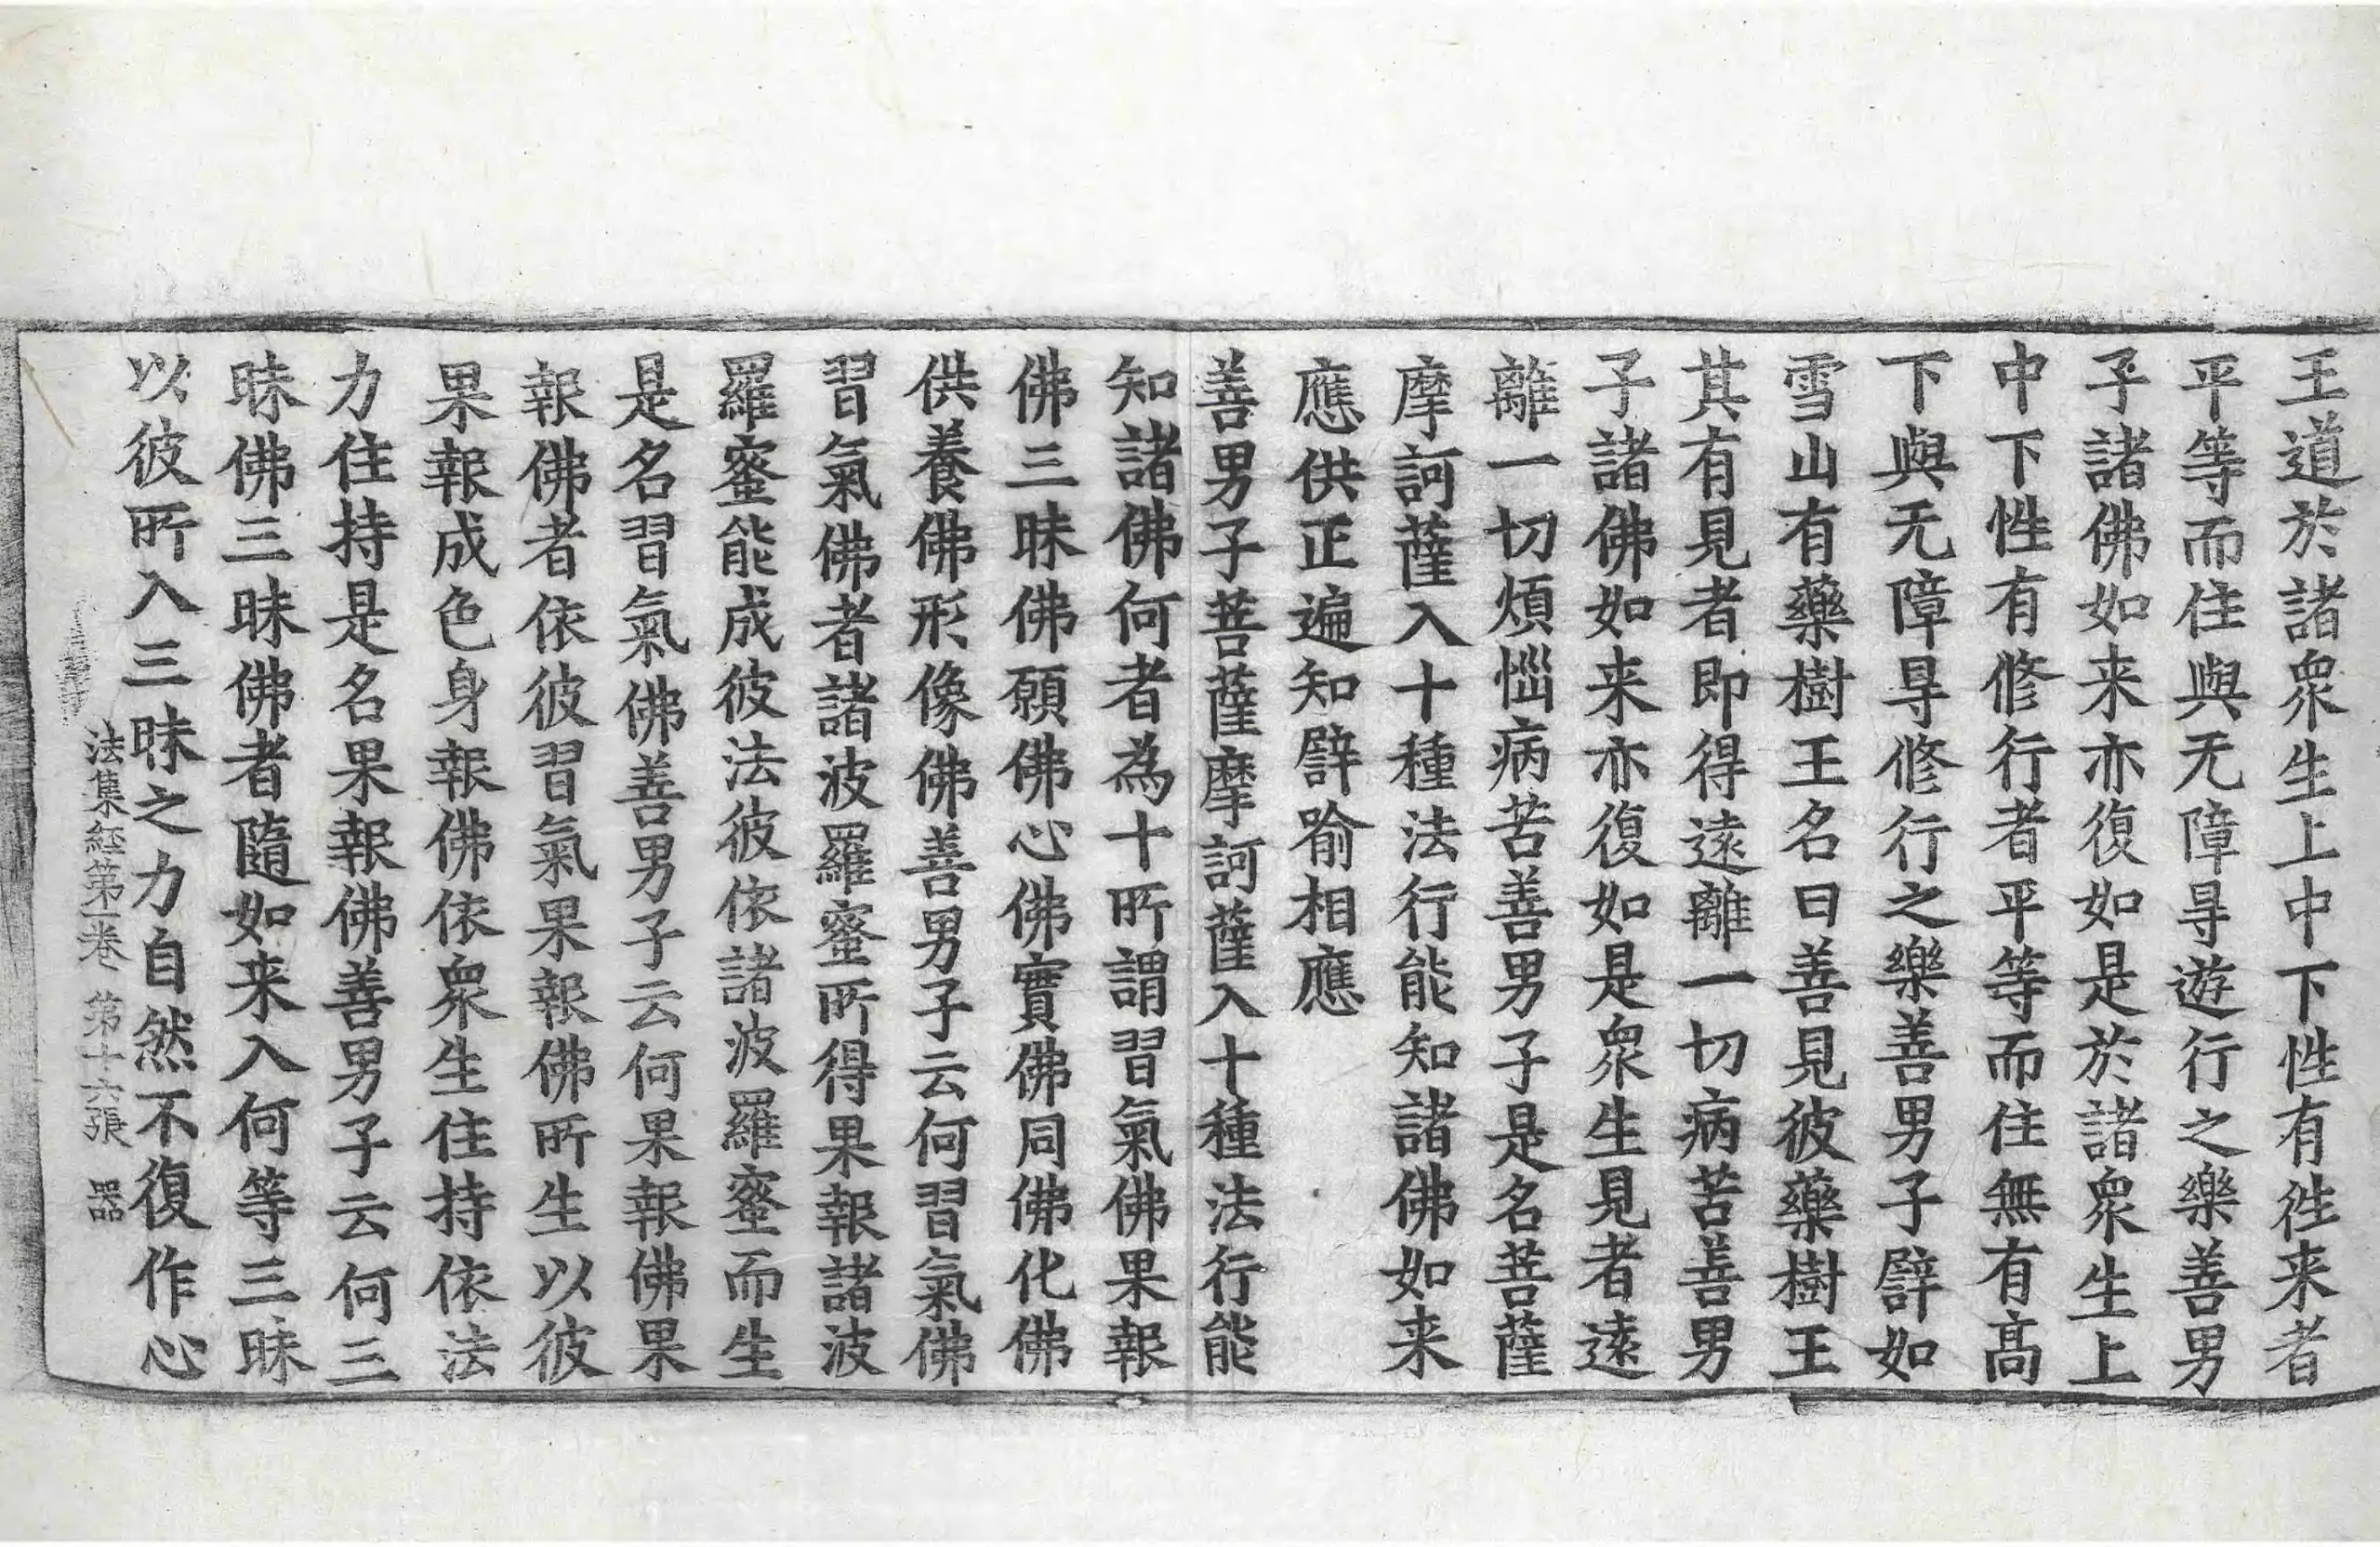 王道於諸衆生上中下性有徃来者
平等而住與无障㝵遊行之樂善男
子諸佛如来亦復如是於諸衆生上
中下性有修行者平等而住無有髙
下與无障㝵修行之樂善男子譬如
雪山有藥樹王名曰善見彼藥樹王
其有見者即得遠離一切病苦善男
子諸佛如来亦復如是衆生見者遠
離一切煩惱病苦善男子是名菩薩
摩訶薩入十種法行能知諸佛如来
應供正遍知譬喻相應
善男子菩薩摩訶薩入十種法行能
知諸佛何者為十所謂習氣佛果報
佛三昧佛願佛心佛實佛同佛化佛
供養佛形像佛善男子云何習氣佛
習氣佛者諸波羅蜜所得果報諸波
羅蜜能成彼法彼依諸波羅蜜而生
是名習氣佛善男子云何果報佛果
報佛者依彼習氣果報佛所生以彼
果報成色身報佛依衆生住持依法
力住持是名果報佛善男子云何三
昧佛三昧佛者隨如来入何等三昧
以彼所入三昧之力自然不復作心
法集経第一卷 第十六張 器